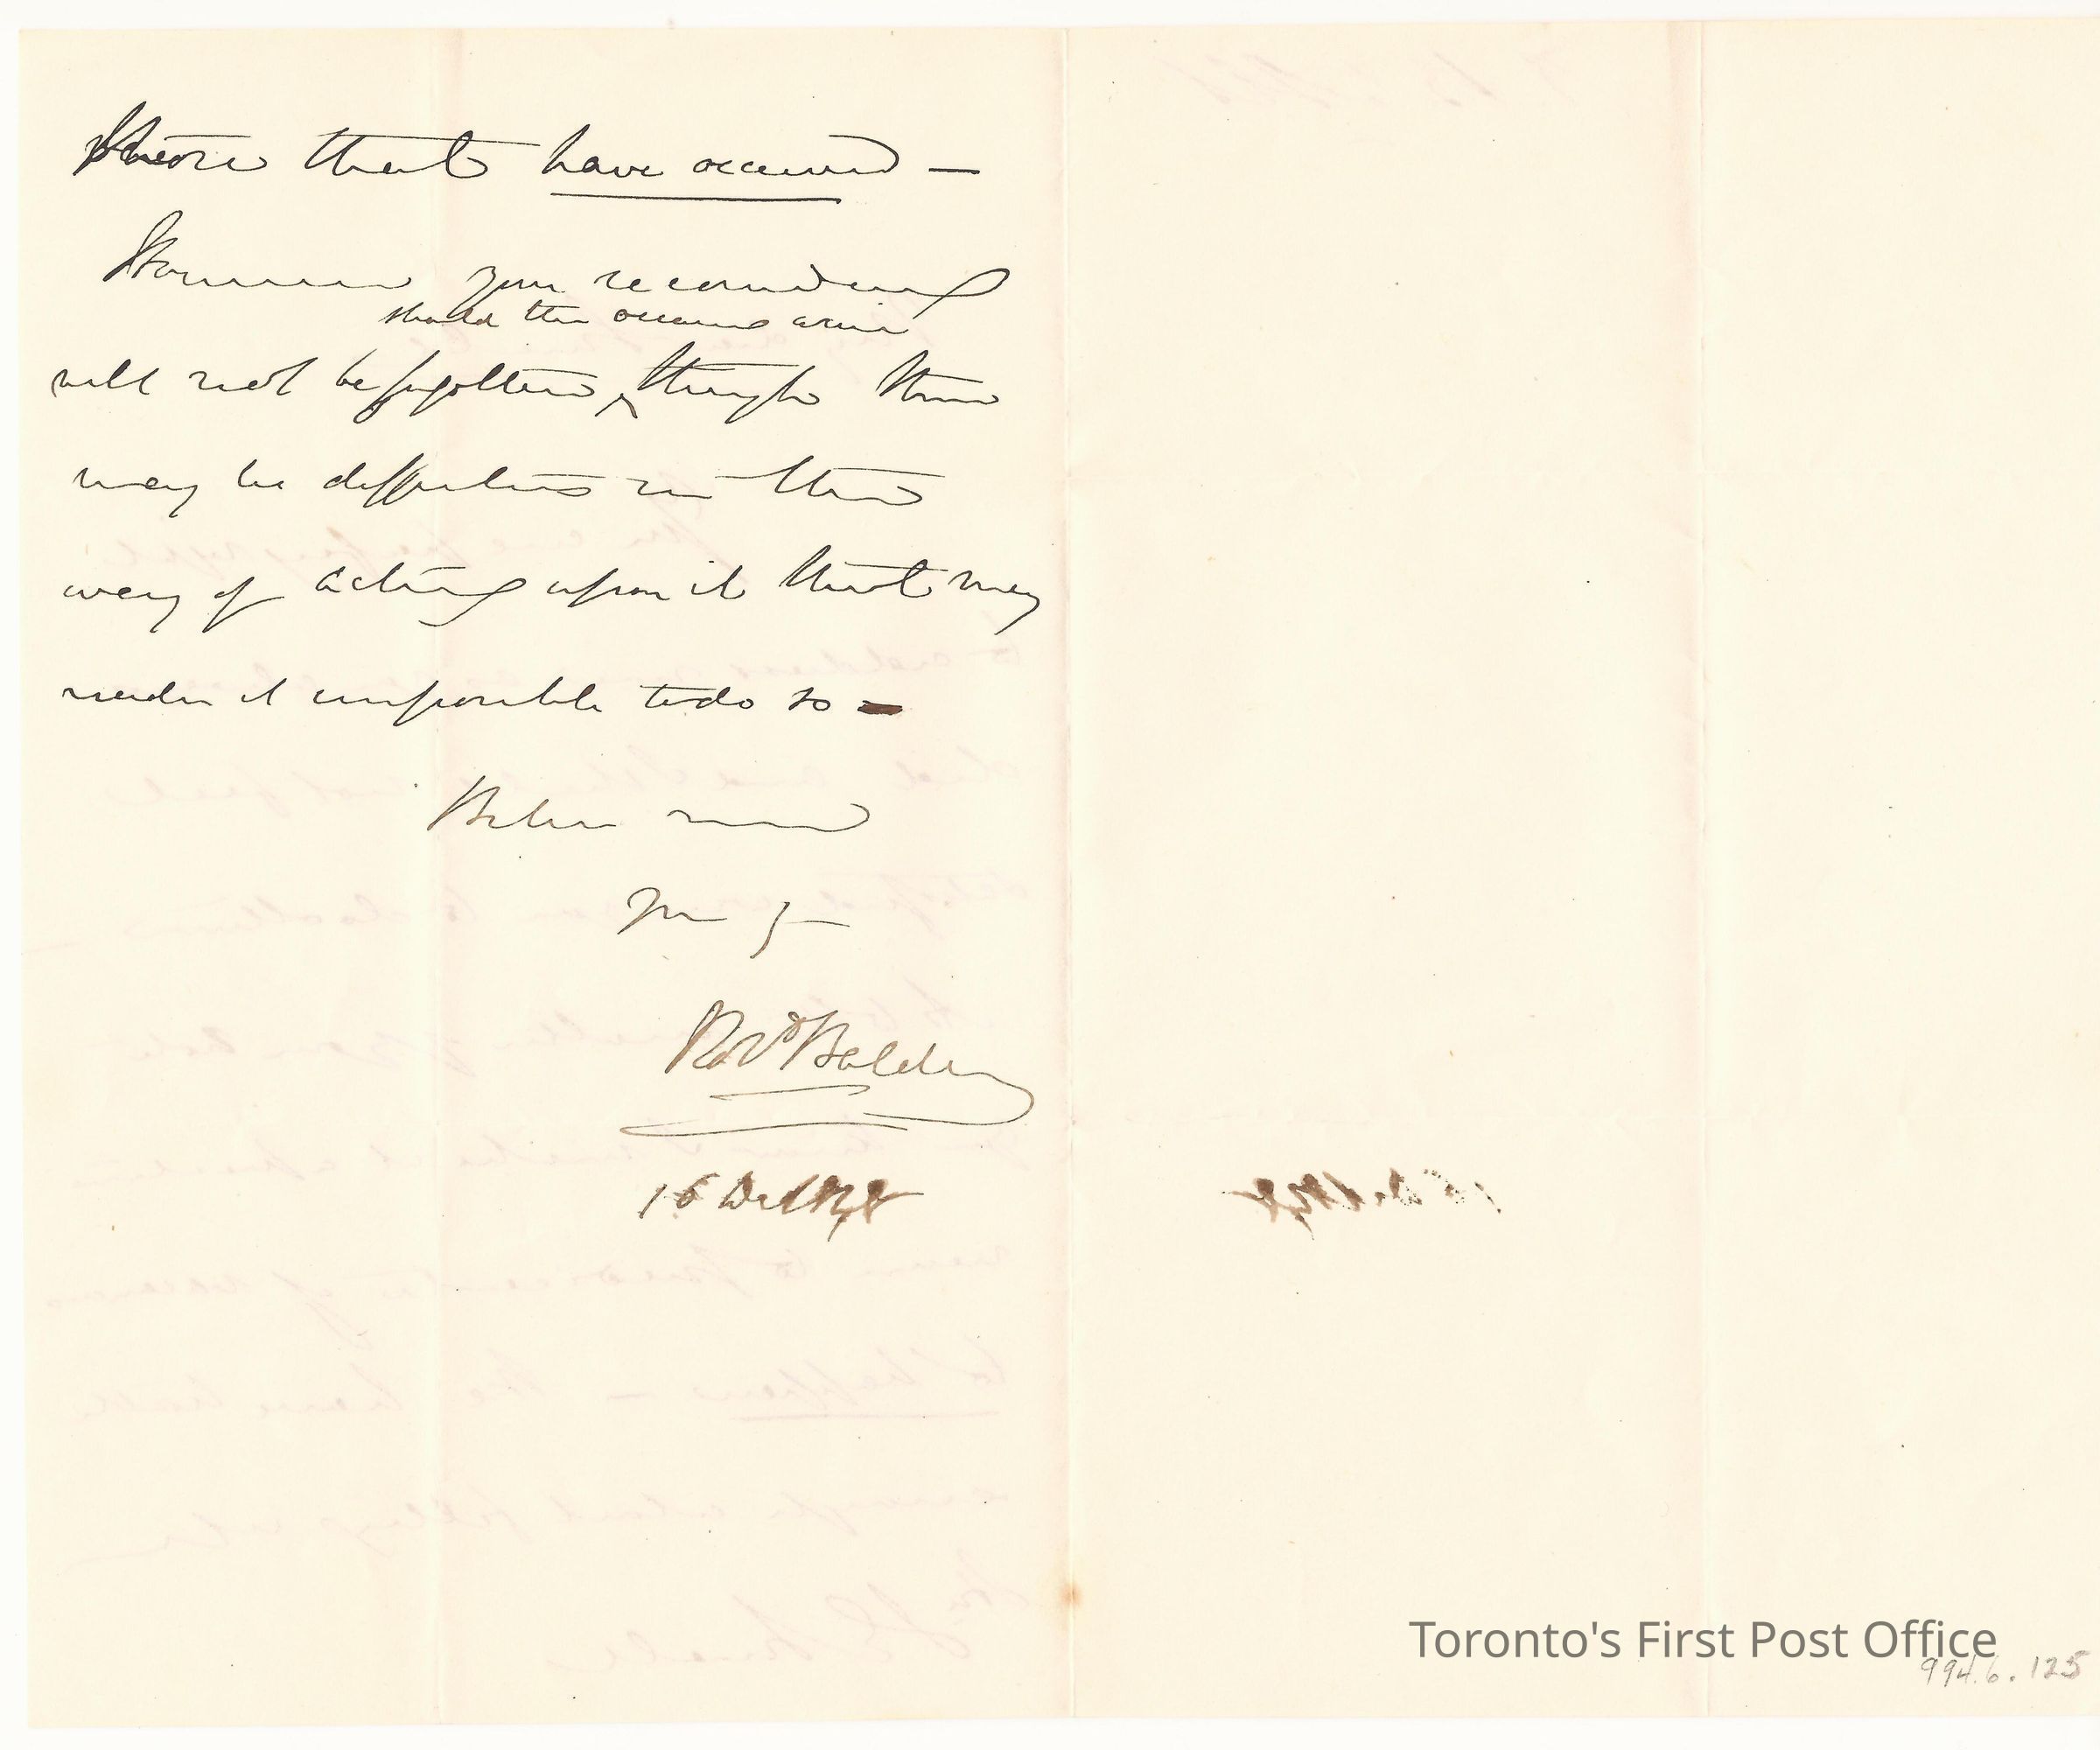 those that have occurred —
However your recommending
should the occasion arise
will not be forgotten, though there
may be difficulties in the
way of acting upon it that may
render it impossible to do so —
Believe me
Robt Baldwin
15
Toronto's First Post Office
994.6.125